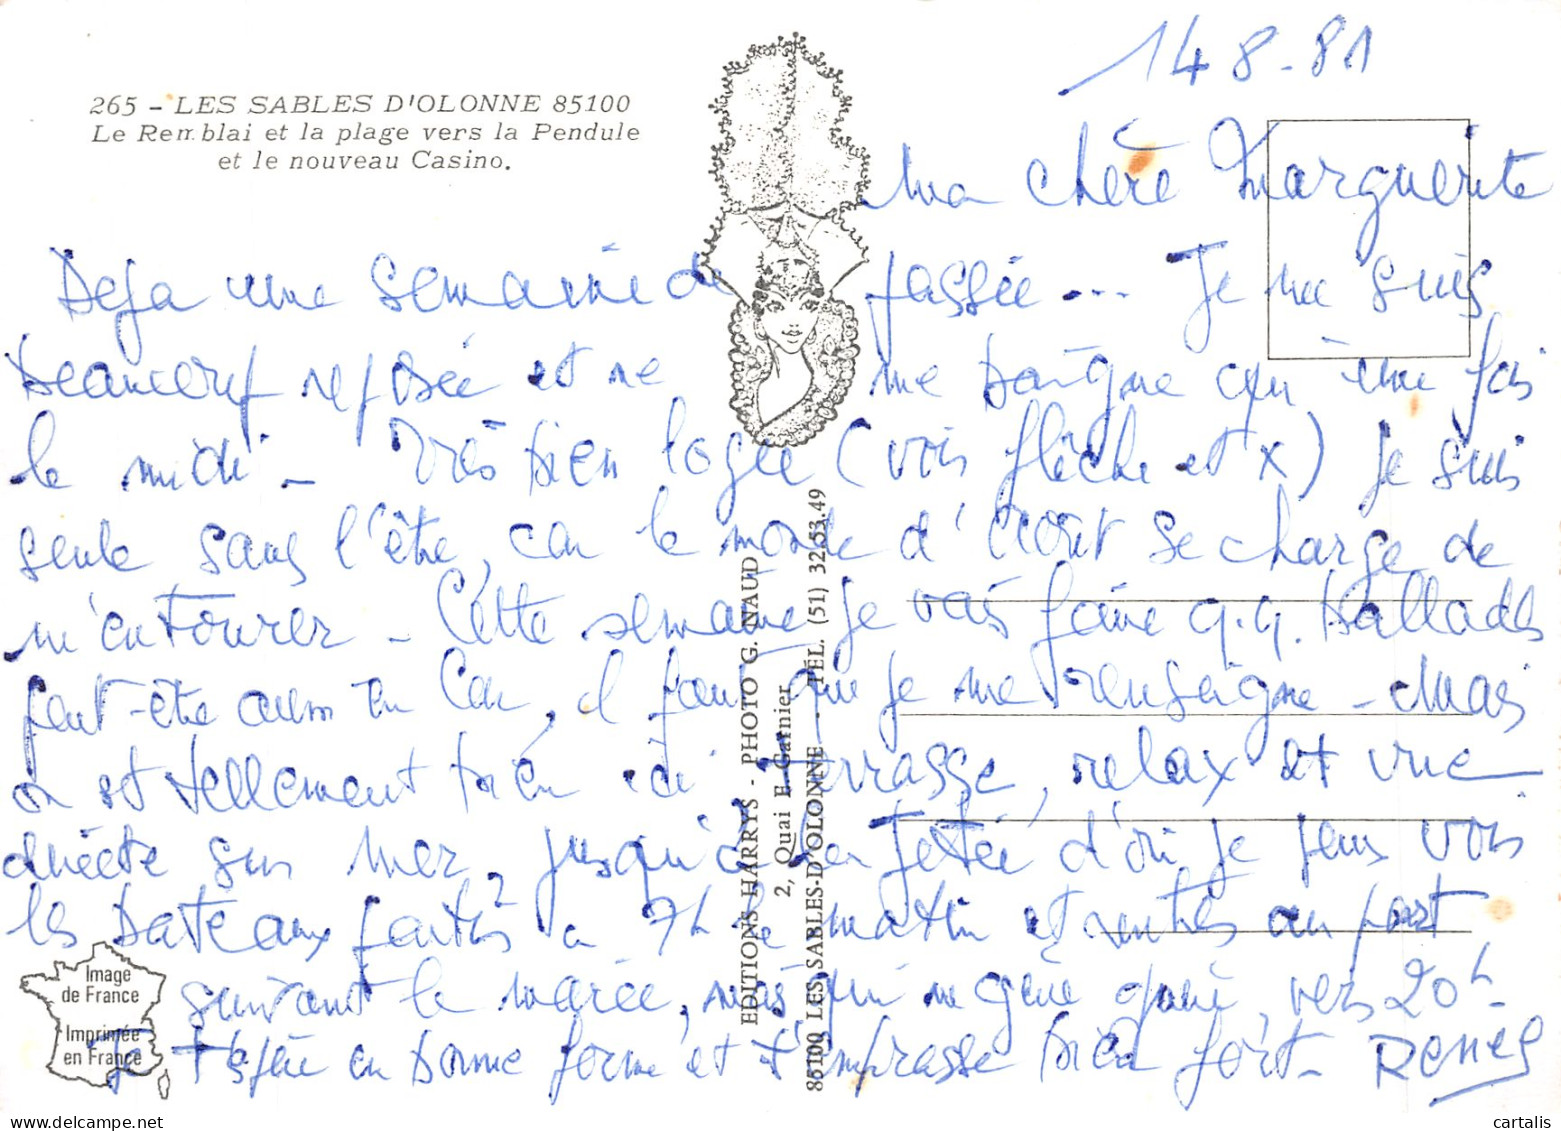 14 8-81
265 - LES SABLES D'OLONNE 85100
Le Remblai et la plage vers la Pendule
et le nouveau Casino.
Ma chère Marguerite
Deja une semaine de passée... Je me suis
beaucoup reposée et ne me baigne qu'une fois
le midi - Très bien logée (vois flèche et x) Je suis
seule sans l'être, car le monde d'Août se charge de
m'entourer - Cette semaine je vais faire q.q. ballades
peut-être aussi en Car, il faut que je me renseigne - Mais
on est tellement bien ici terrasse, relax et vue
directe sur mer, jusqu'à la Jetée d'où je peux voir
les bateaux partir à 7h le matin et rentrés au port
suivant la marée, mais qui ne gêne vers 20h-
Je t'espère en bonne forme et t'embrasse bien fort - Renée
EDITIONS HARRYS - PHOTO G. NAUD
2, Quai E. Garnier
86100 LES SABLES-D'OLONNE - TÉL. (51) 32.53.49
Image
de France
Imprimée
en France
cartalis